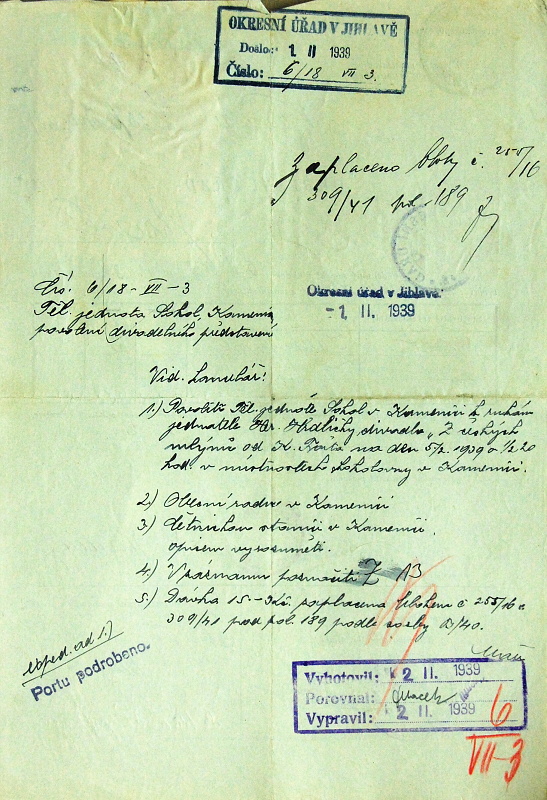 OKRESNÍ ÚŘAD V JIHLAVĚ
Došlo: 1 II 1939
Číslo: 6/18 VII 3.
zaplaceno bloky č. 255/16
309/41 pol. 189
Okresní úřad v Jihlavě.
-1. II. 1939
Čís: 6/18 - VII - 3
Těl. jednota Sokol, Kamenice
povolení divadelního představení
Vid. kancelář!
1.) Povoliti Těl. jednotě Sokol v Kamenici k rukám
jednatele divadlo „Z českých
mlýnů od K. na den 5/2. 1939 o 1/2 20
hod. v místnostech Sokolovny v Kamenici.
2.) Obecní radu v Kamenici
3.) četnickou stanici v Kamenici.
opisem vyrozuměti.
4.) V záznamu poznačiti Z 13
5.) Dávka 15.- Kč. zaplacena blokem č 255/16 a
309/41 pod pol. 189 podle sazby B/40.
exped. ad 1.)
Portu podrobeno.
Vyhotovil: 2 II. 1939
Porovnal:
Vypravil: 2 II. 1939
6
VII-3